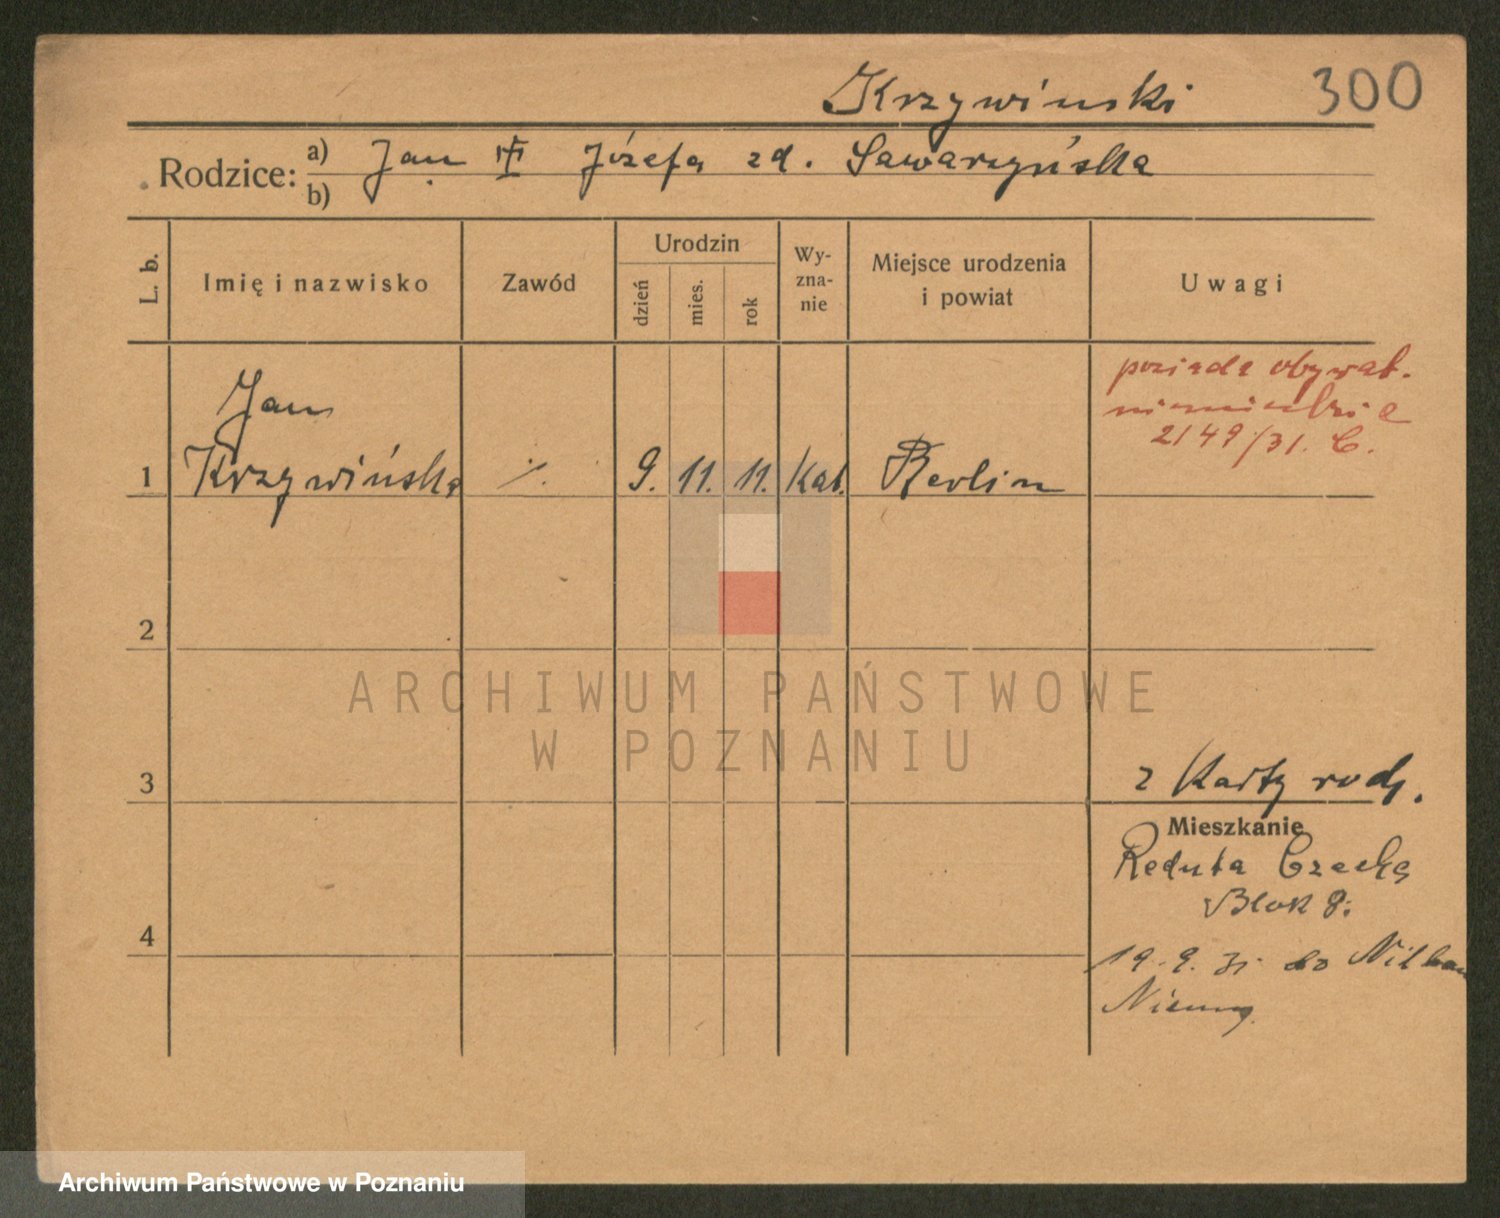 Krzywinski 300
Rodzice: a) Jan Józefa zd. Sawarzyńska
b)
L. b. Imię i nazwisko Zawód Urodzin dzień mies. rok Wy-zna-nie Miejsce urodzenia i powiat Uwagi
posiada obywat.
niemieckie
2149/31. C.
Jan
1 Krzywiński ·/. 9. 11. 11. Kat. Berlin
2
ARCHIWUM PAŃSTWOWE
W POZNANIU
3 z Karty rodz.
Mieszkanie
Reduta Czecha
Blok 8.
4
19. 9. 31 do
Niemcy.
Archiwum Państwowe w Poznaniu